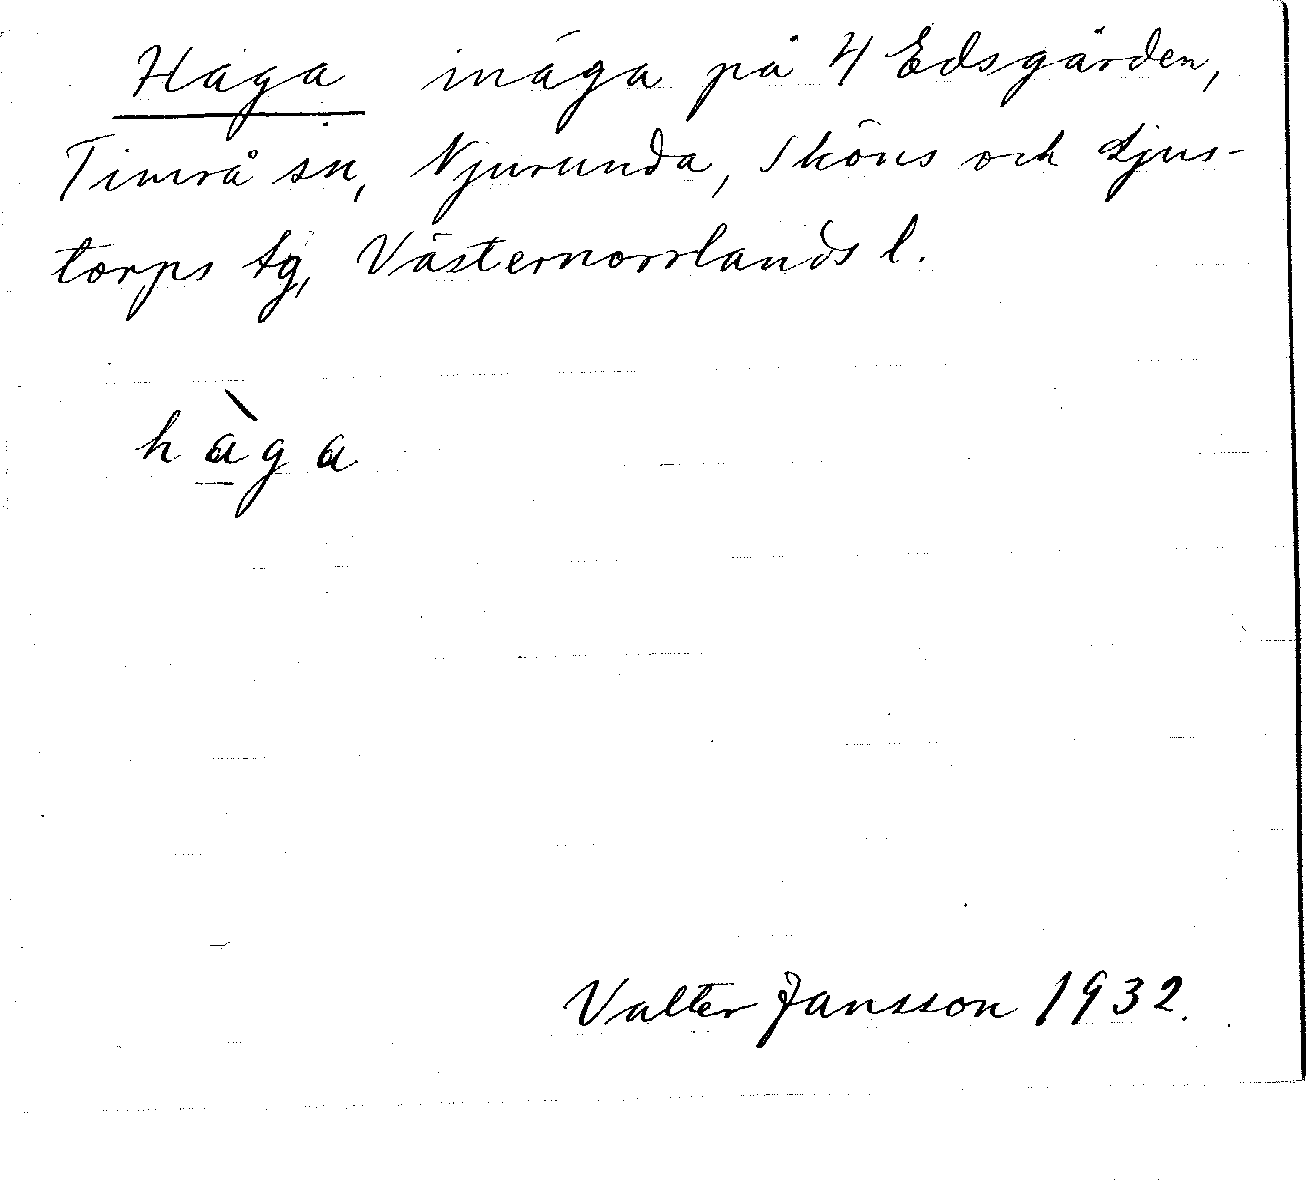 Haga inäga på 4 Edsgården,
Timrå sn, Njurunda, Sköns och Ljus-
torps tg, Västernorrlands l.
hàga
Valter Jansson 1932.